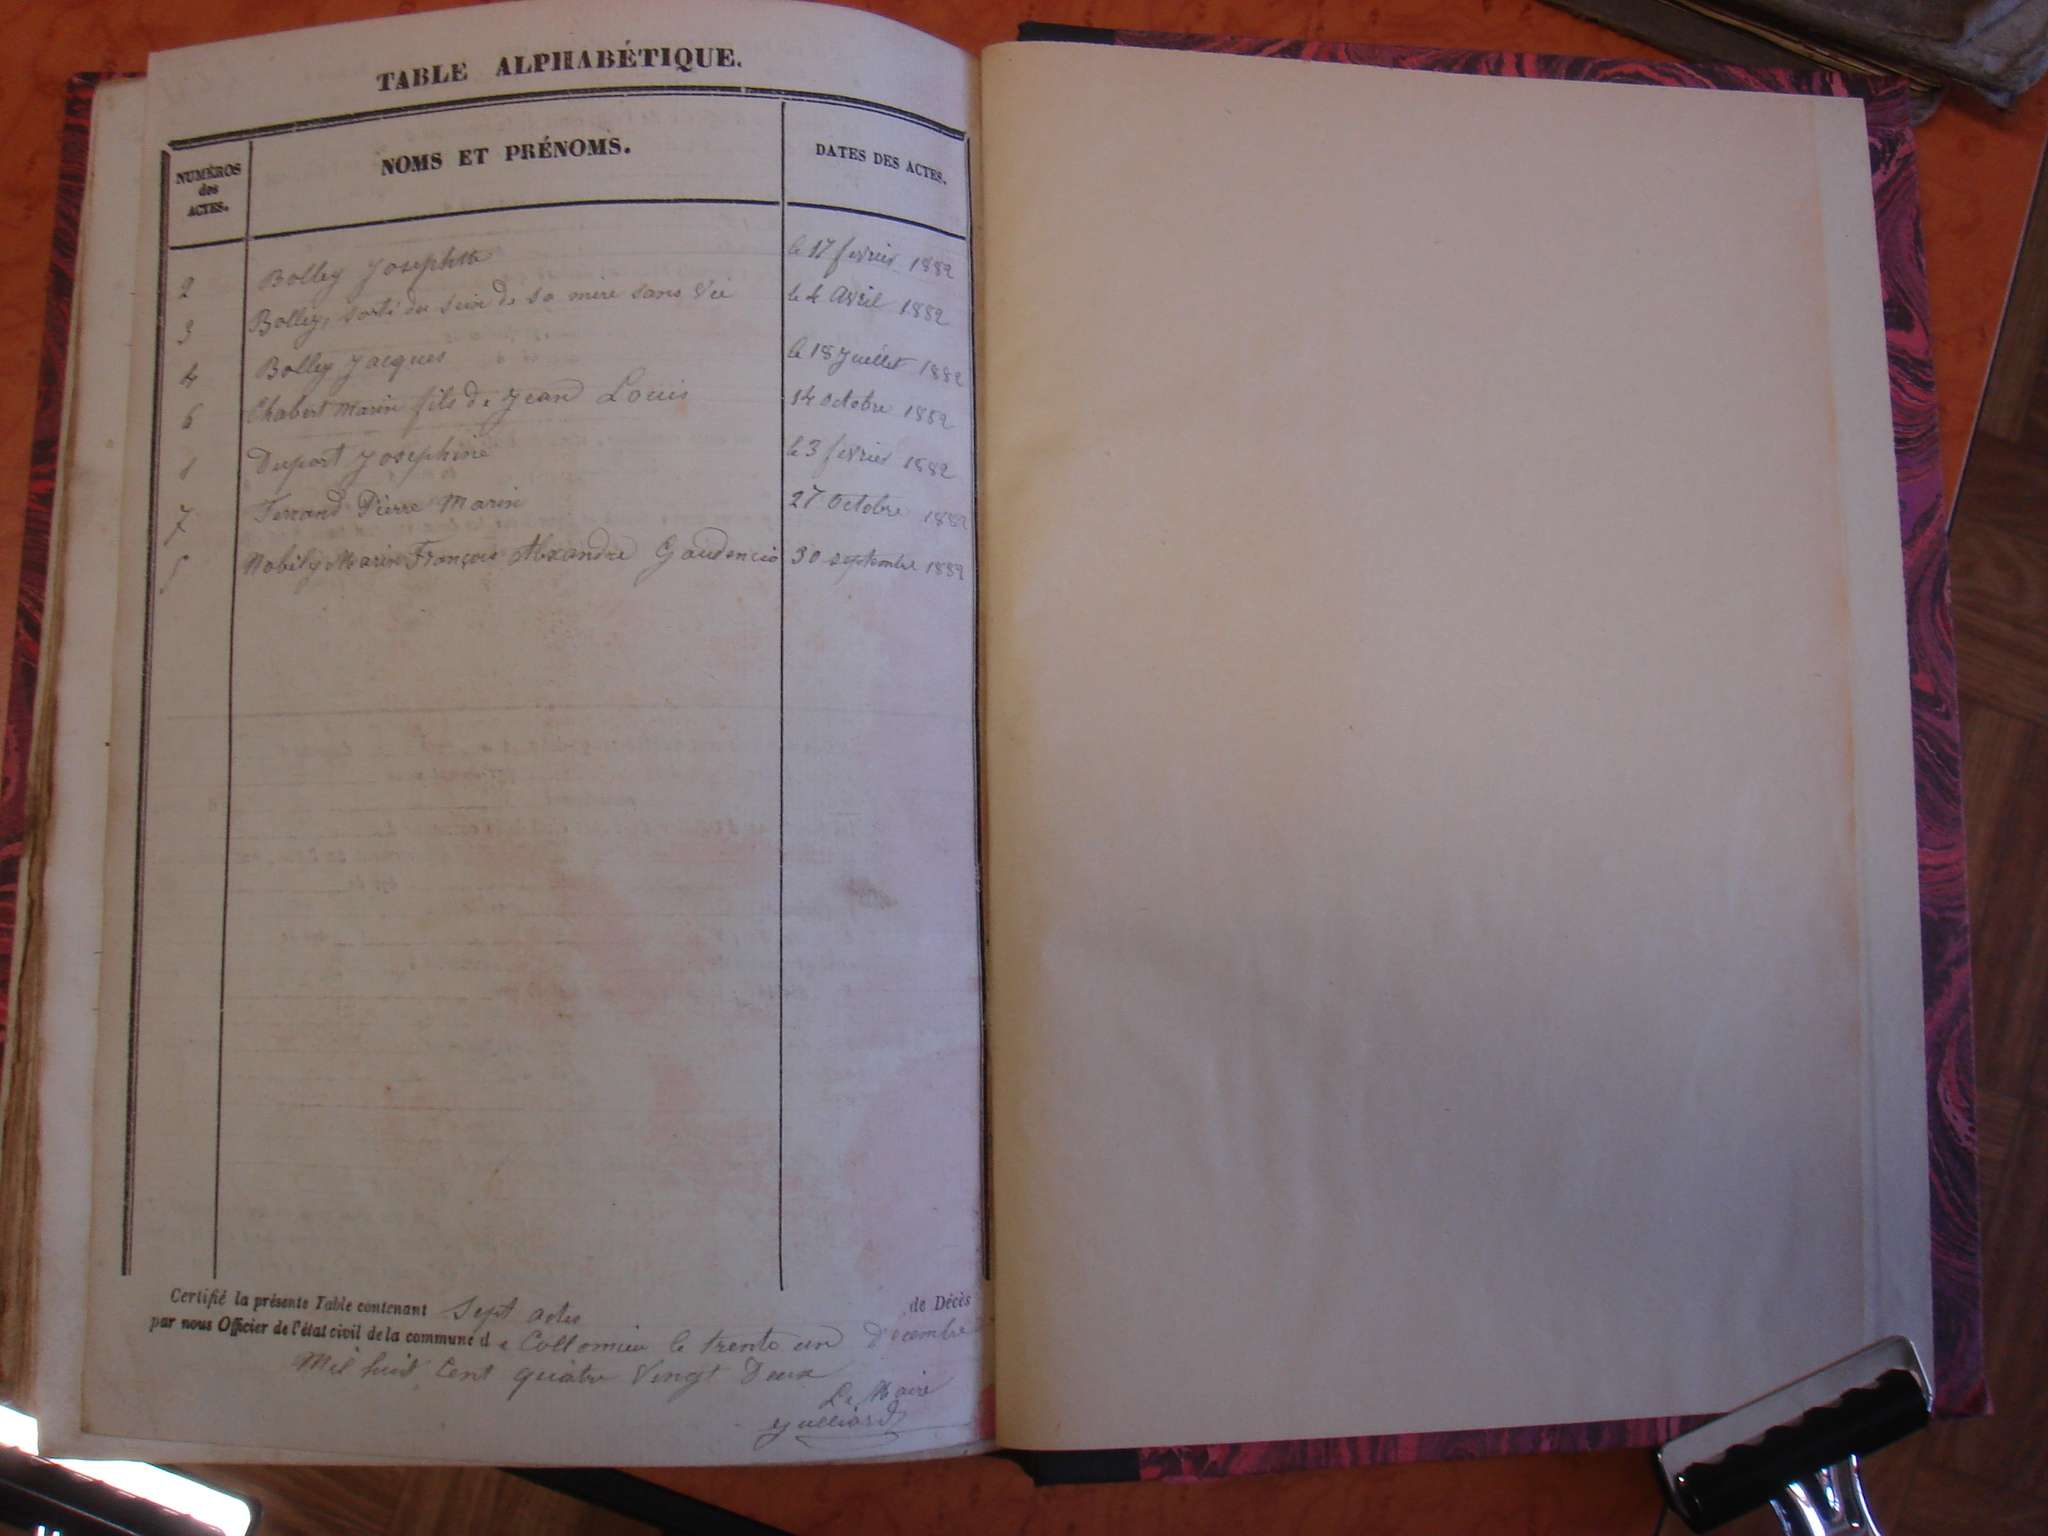 TABLE ALPHABÉTIQUE.
NUMÉROS des ACTES.
NOMS ET PRÉNOMS.
DATES DES ACTES.
2 Bolley Josephte le 17 fevrier 1882
3 Bolley, sorti du sein de sa mere sans Vie le 4 Avril 1882
4 Bolley Jacques le 18 Juillet 1882
6 Chabert Marin fils de Jean Louis 14 Octobre 1882
1 Duport Josephine le 3 fevrier 1882
7 Ferrand Pierre Marin 27 Octobre 1882
5 Nobily Marin François Alexandre Gaudencio 30 septembre 1882
Certifié la présente Table contenant Sept actes de Décès
par nous Officier de l'état civil de la commune de Collomieu le trente un Décembre
Mil huit Cent quatre Vingt Deux
Le Maire
Juilliard